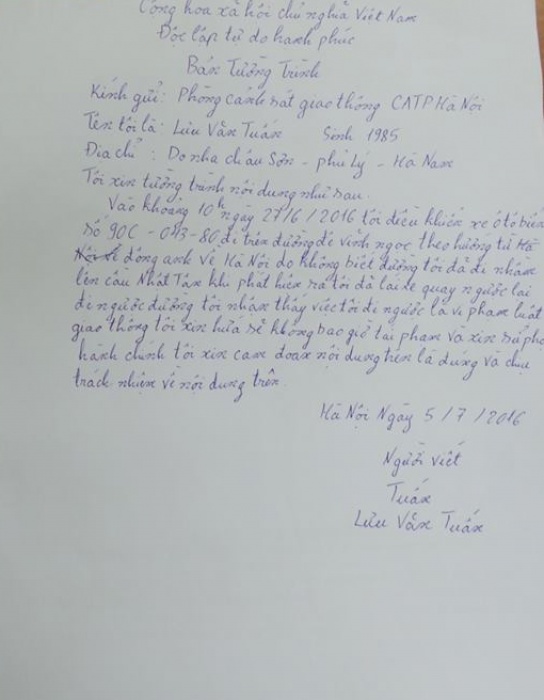 Cộng hòa xã hội chủ nghĩa Việt Nam
Độc lập tự do hạnh phúc
Bản Tường Trình
Kính gửi: Phòng cảnh sát giao thông CATP Hà Nội
Tên tôi là: Lưu Văn Tuấn Sinh 1985
Địa chỉ: Do nha châu Sơn - phủ Lý - Hà Nam
Tôi xin tường trình nội dung như sau.
Vào khoảng 10h ngày 27/6/2016 tôi điều khiển xe ôtô biển
số 90C - 043-80 đi trên đường đê vĩnh ngọc theo hướng từ
đông anh về Hà Nội do không biết đường tôi đã đi nhầm
lên cầu Nhật Tân khi phát hiện ra tôi đã lái xe quay ngược lại
đi ngược đường tôi nhận thấy việc tôi đi ngược là vi phạm luật
giao thông tôi xin hứa sẽ không bao giờ tái phạm và xin xử phạt
hành chính tôi xin cam đoan nội dung trên là đúng và chịu
trách nhiệm về nội dung trên.
Hà Nội Ngày 5/7/2016
Người viết
Tuấn
Lưu Văn Tuấn